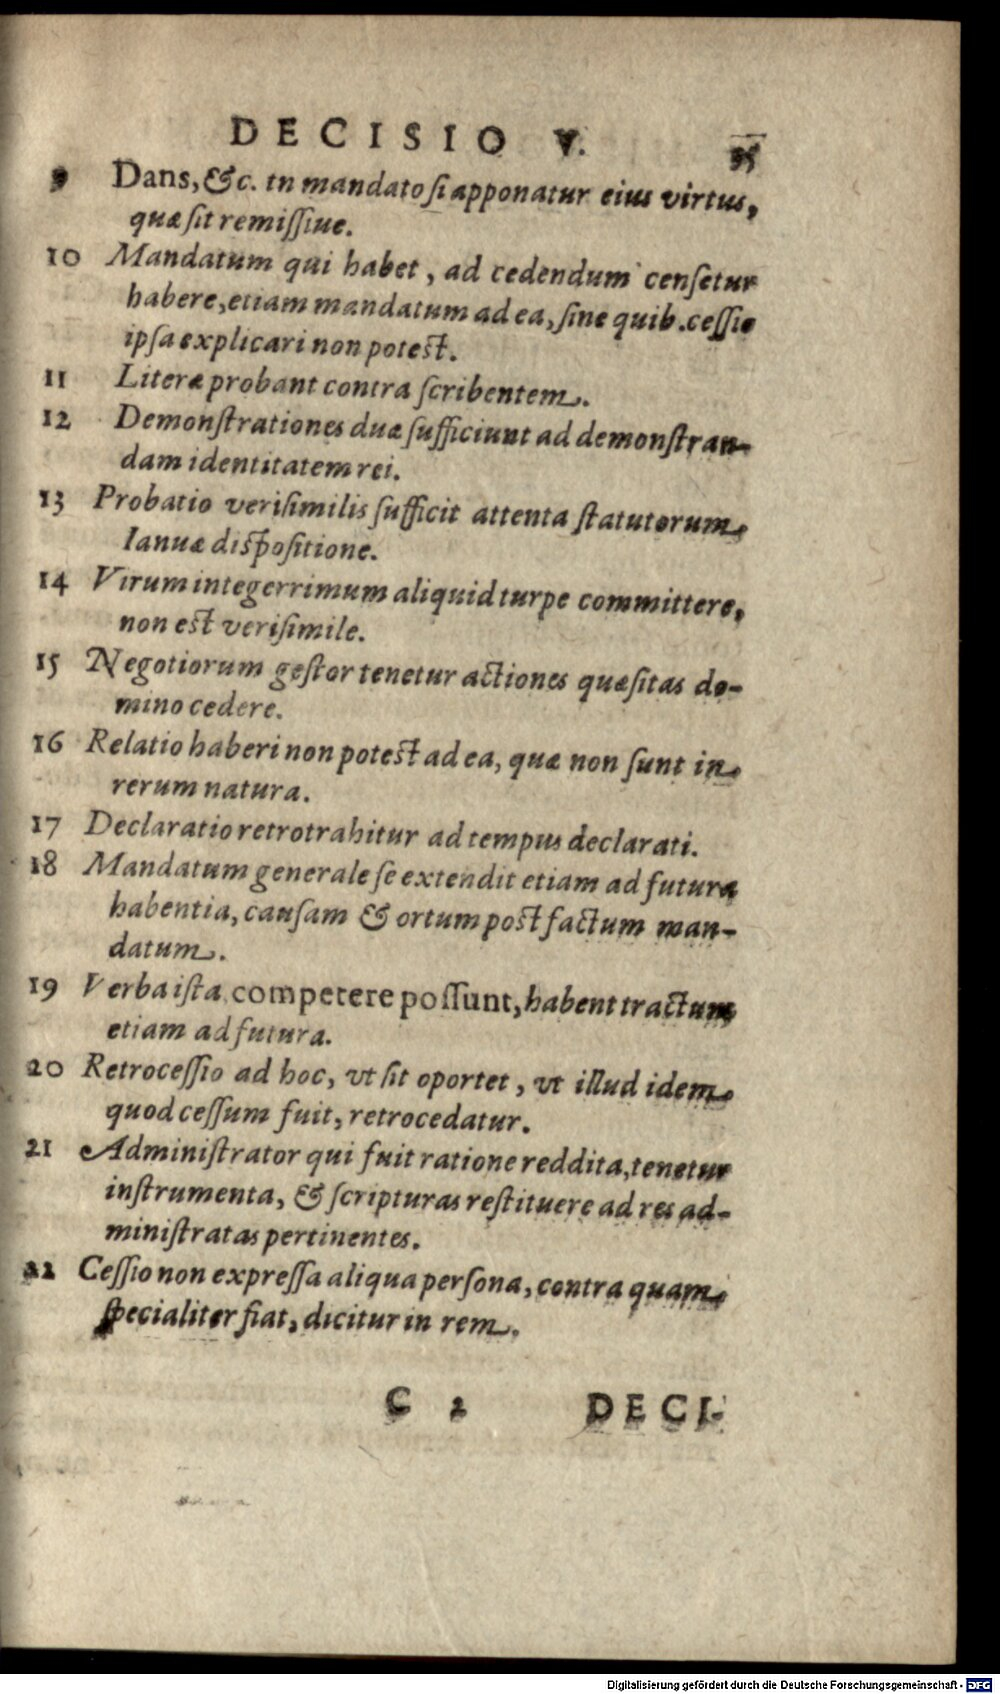 DECISIO V. 35
9 Dans, &c. in mandato si apponatur eius virtus,
quæ sit remissiue.
10 Mandatum qui habet, ad cedendum censetur
habere, etiam mandatum ad ea, sine quib. cessio
ipsa explicari non potest.
11 Literæ probant contra scribentem.
12 Demonstrationes duæ sufficiunt ad demonstran-
dam identitatem rei.
13 Probatio verisimilis sufficit attenta statutorum
Ianuæ dispositione.
14 Virum integerrimum aliquid turpe committere,
non est verisimile.
15 Negotiorum gestor tenetur actiones quæsitas do-
mino cedere.
16 Relatio haberi non potest ad ea, quæ non sunt in
rerum natura.
17 Declaratio retrotrahitur ad tempus declarati.
18 Mandatum generale se extendit etiam ad futura
habentia, causam & ortum post factum man-
datum.
19 Verba ista competere possunt, habent tractum
etiam ad futura.
20 Retrocessio ad hoc, vt sit oportet, vt illud idem
quod cessum fuit, retrocedatur.
21 Administrator qui fuit ratione reddita, tenetur
instrumenta, & scripturas restituere ad res ad-
ministratas pertinentes.
22 Cessio non expressa aliqua persona, contra quam
specialiter fiat, dicitur in rem.
C 2 DECI-
Digitalisierung gefördert durch die Deutsche Forschungsgemeinschaft - DFG